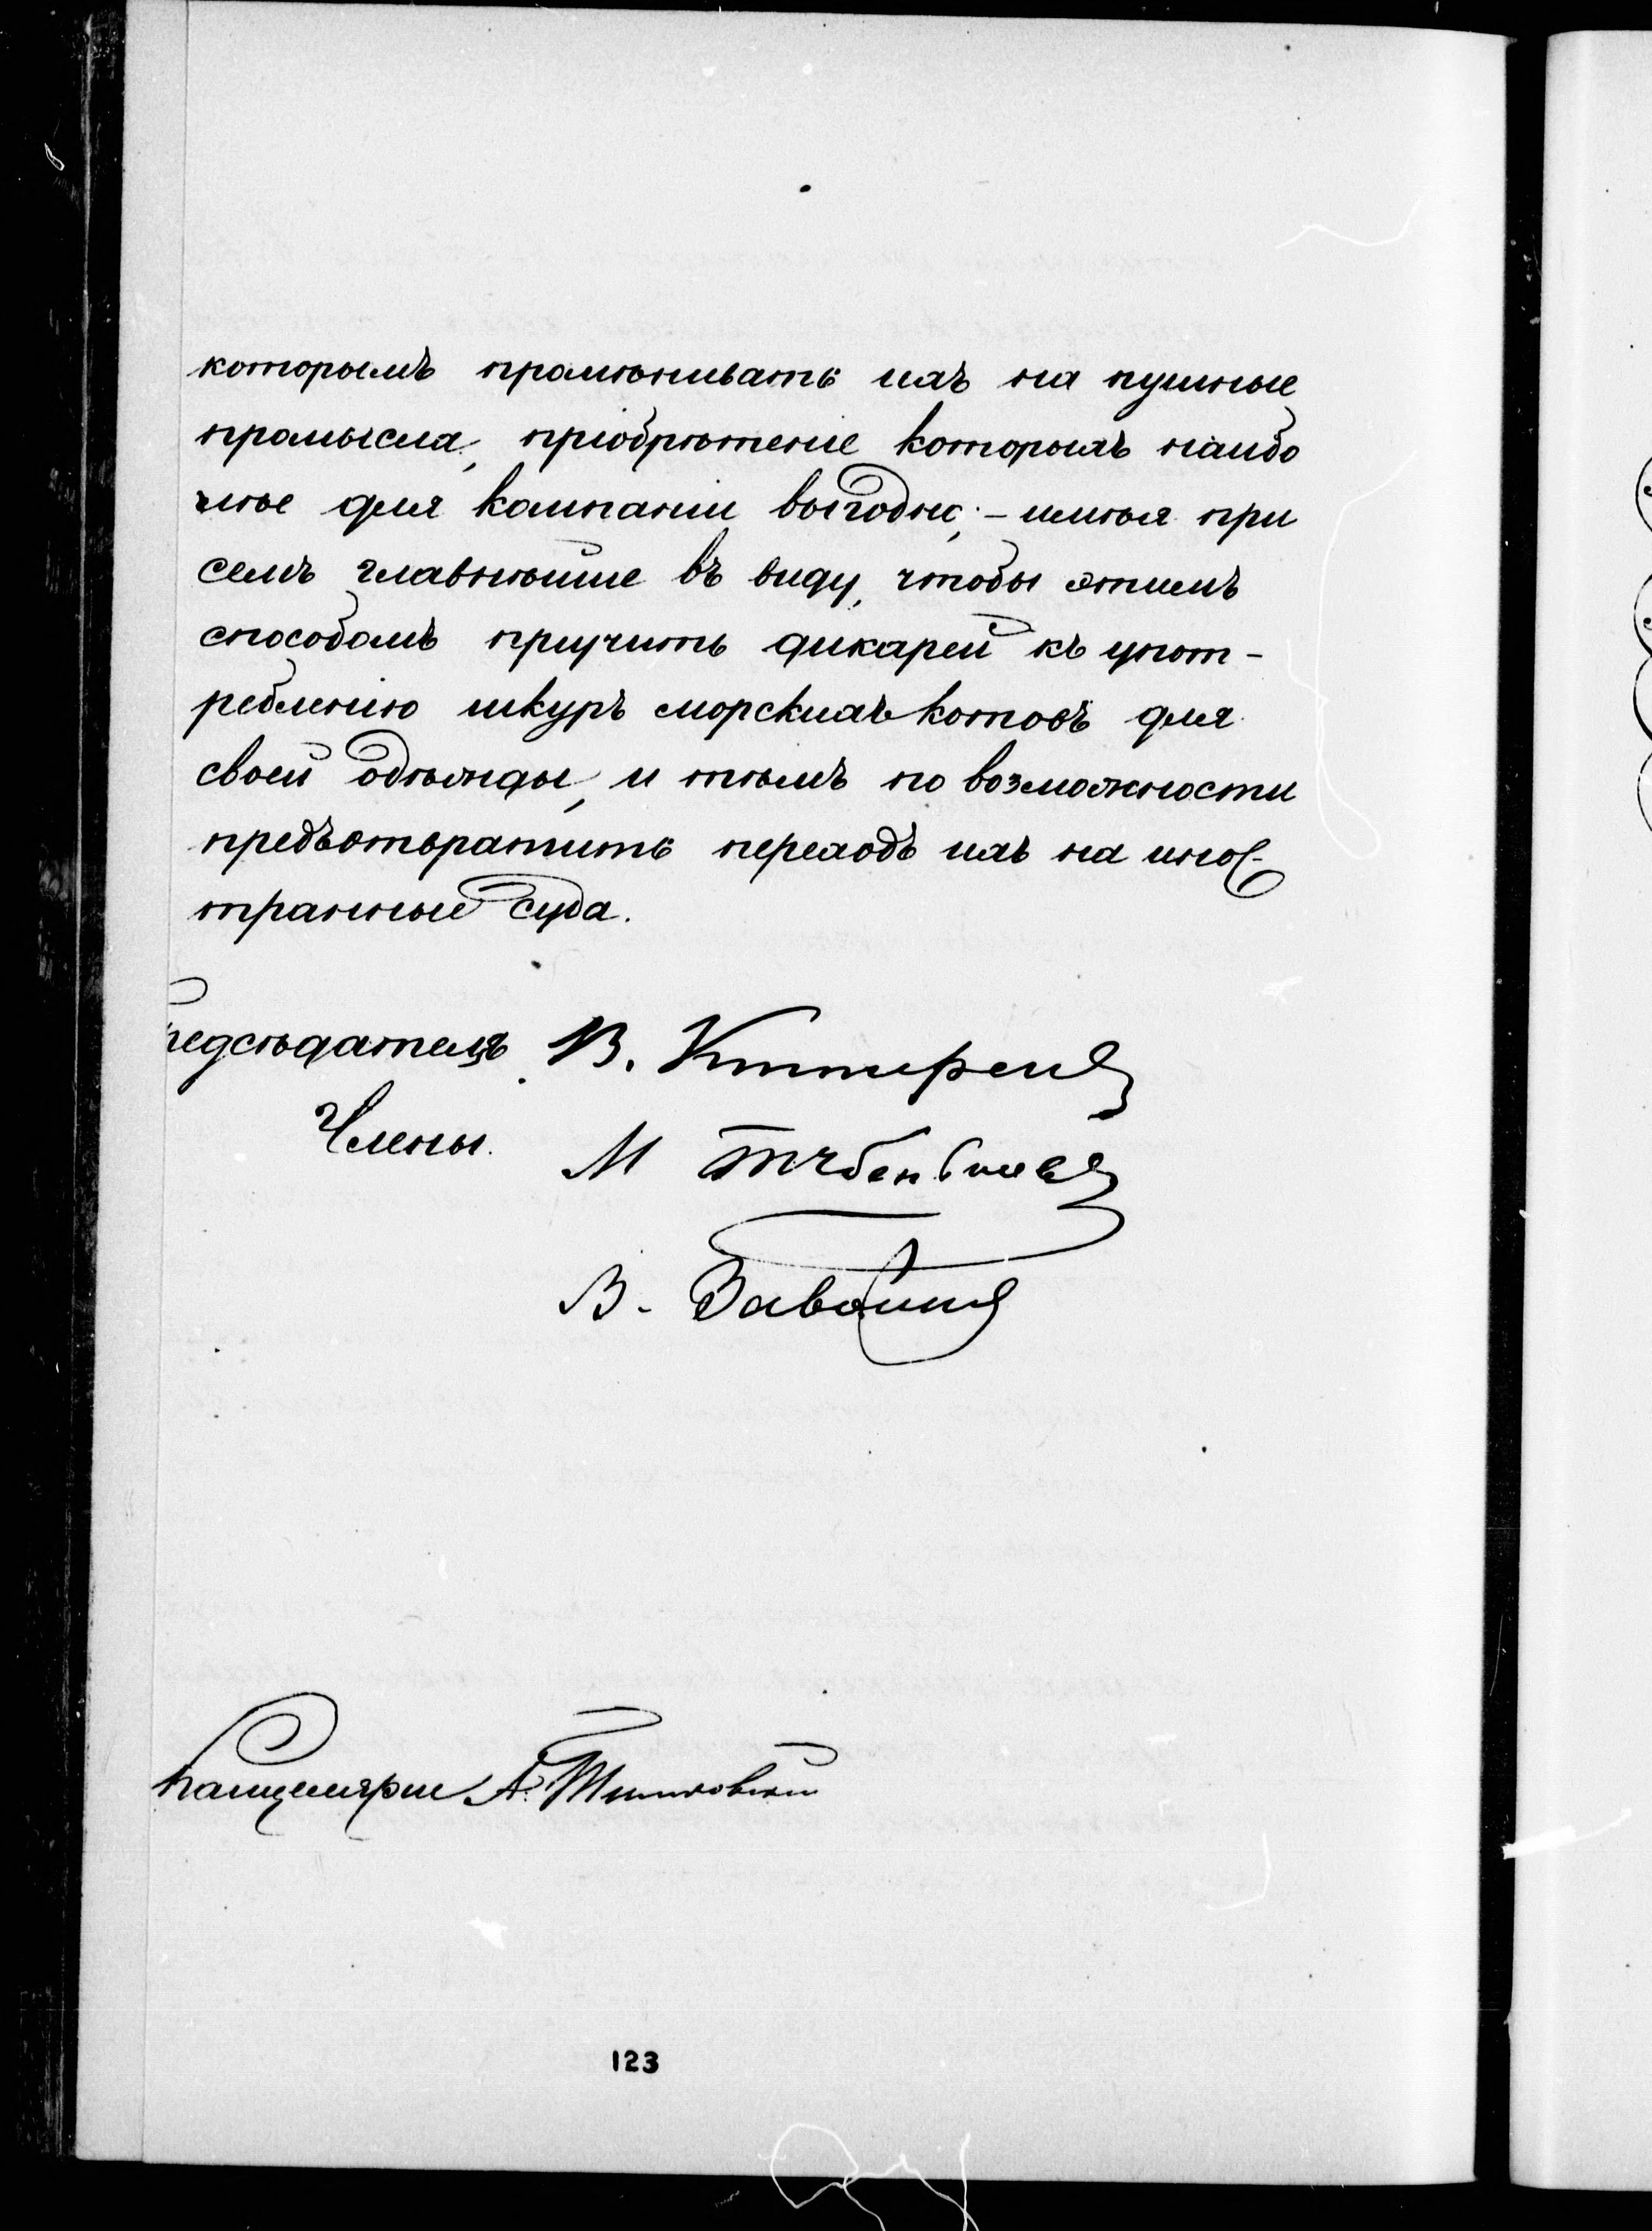 которымъ промѣнивать ихъ на пушные
промысла, пріобрѣтеніе которыхъ наибо
лѣе для компаніи выгодно, - имѣя при
семъ главнѣйше въ виду, чтобы этимъ
способомъ пріучить дикарей къ упот-
ребленію шкуръ морскихъ котовъ для
своей одѣжды, и тѣмъ по возможности
предъотвратить переходъ ихъ на инос-
транные суда.
редсѣдатель В.
Члены. М
В. Завойко
Канцеляріи А.
123